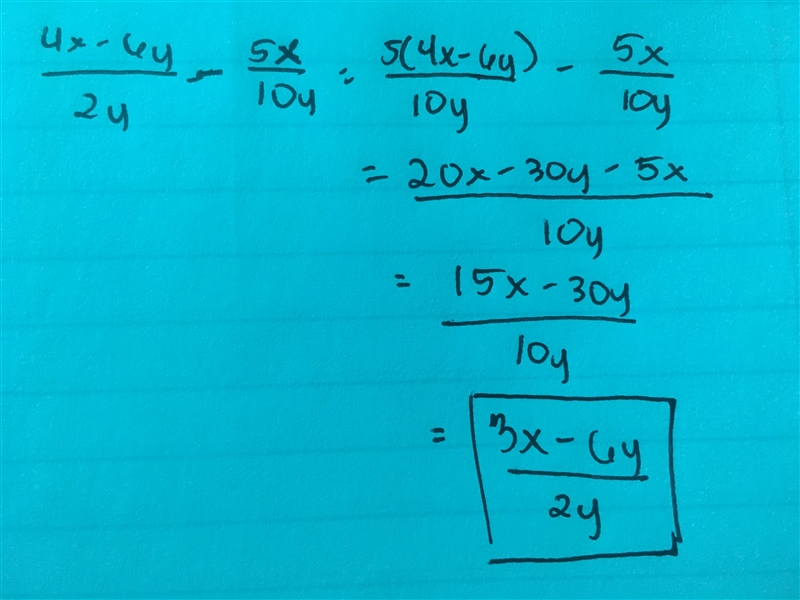 (4x - 6y)/(2y) - (5x)/(10y) = (5(4x - 6y))/(10y) - (5x)/(10y)
= (20x - 30y - 5x)/(10y)
= (15x - 30y)/(10y)
= (3x - 6y)/(2y)